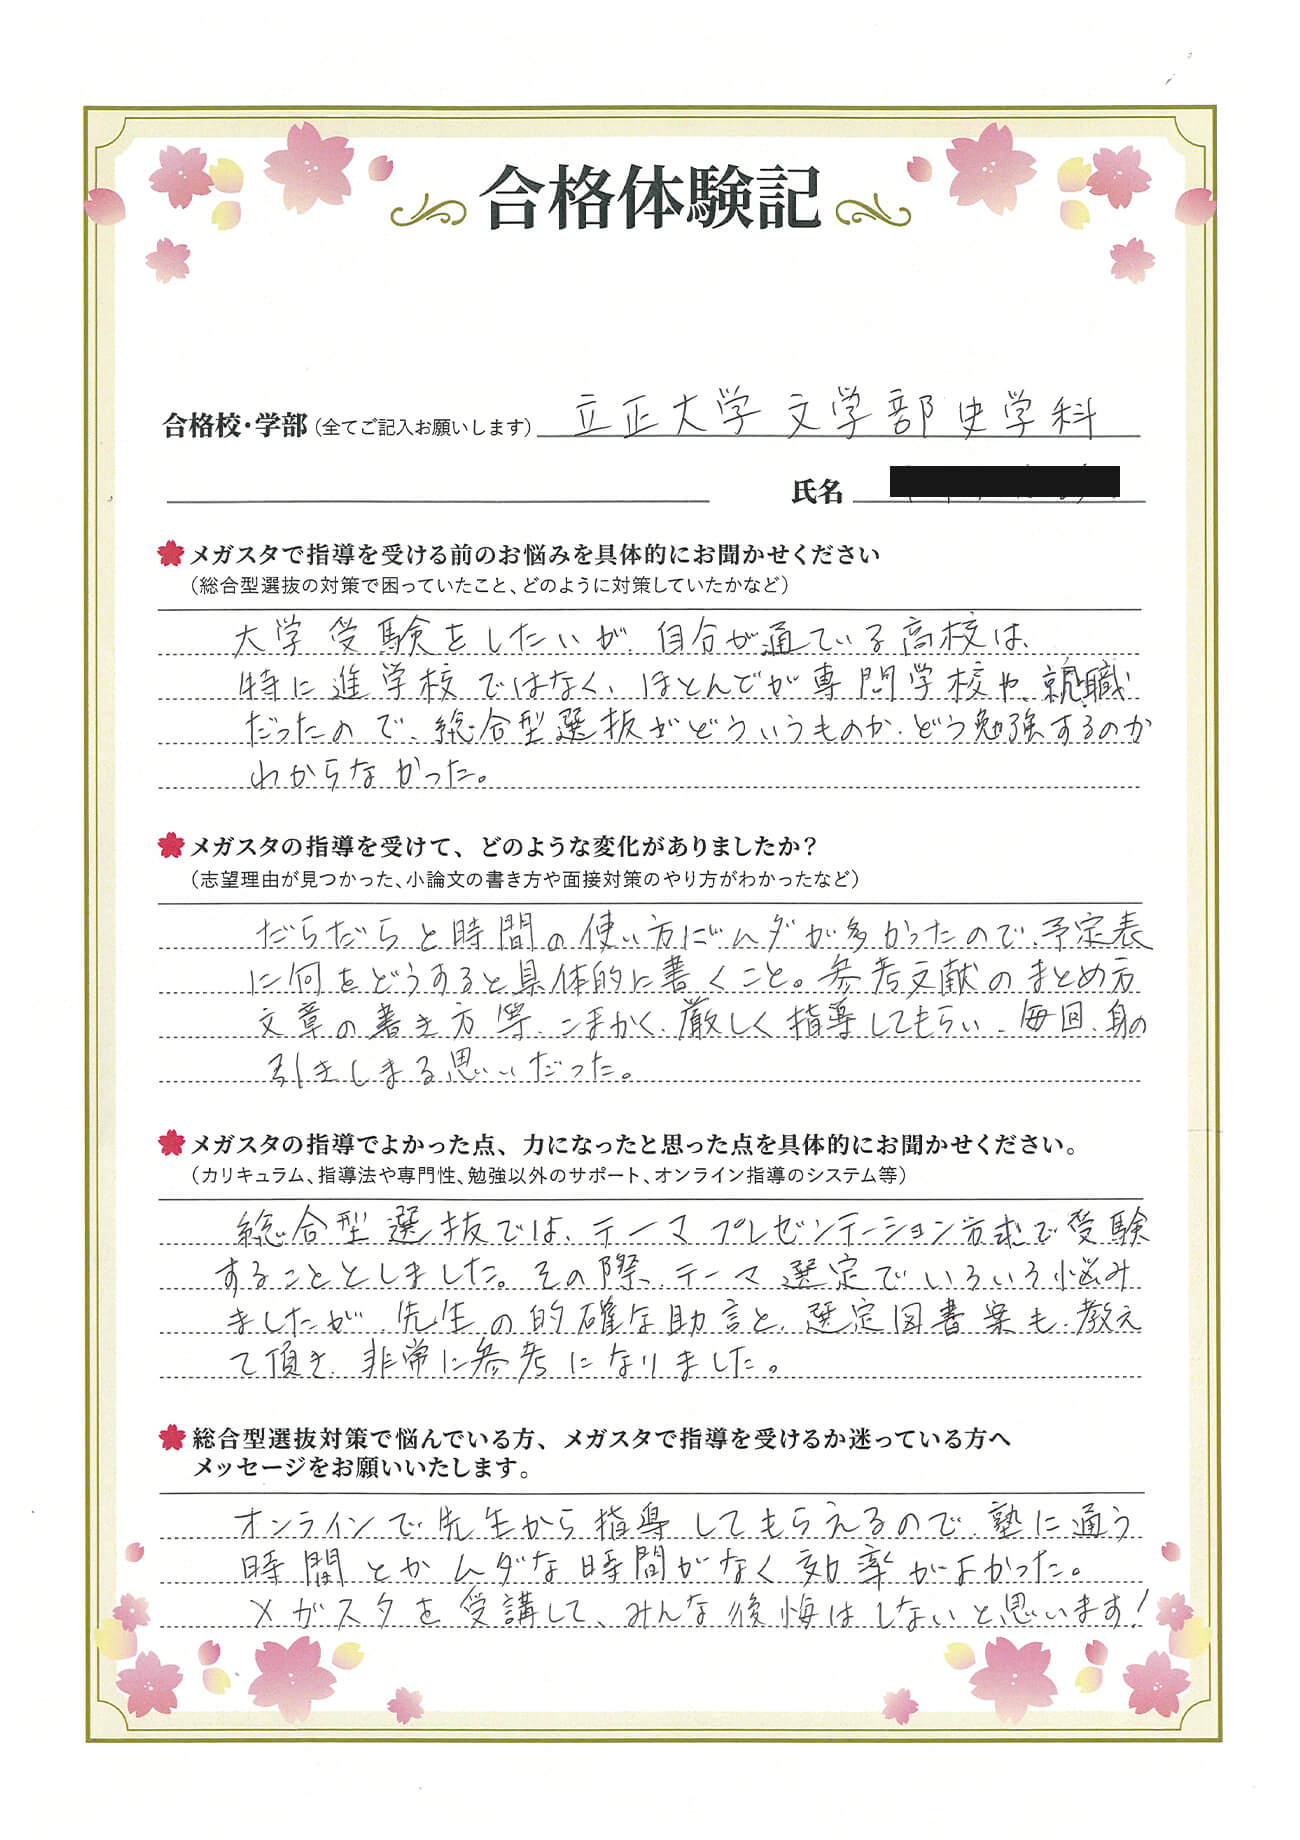 合格体験記
合格校・学部（全てご記入お願いします） 立正大学 文学部 史学科
氏名
メガスタで指導を受ける前のお悩みを具体的にお聞かせください
（総合型選抜の対策で困っていたこと、どのように対策していたかなど）
大学受験をしたいが、自分が通ている高校は、
特に進学校ではなく、ほとんどが専門学校や、就職
だったので、総合型選抜がどういうものか、どう勉強するのか
わからなかった。
メガスタの指導を受けて、どのような変化がありましたか？
（志望理由が見つかった、小論文の書き方や面接対策のやり方がわかったなど）
だらだらと時間の使い方にムダが多かったので、予定表
に何をどうすると具体的に書くこと。参考文献のまとめ方
文章の書き方等、こまかく、厳しく指導してもらい、毎回、身の
引きしまる思いだった。
メガスタの指導でよかった点、力になったと思った点を具体的にお聞かせください。
（カリキュラム、指導法や専門性、勉強以外のサポート、オンライン指導のシステム等）
総合型選抜では、テーマプレゼンテーション方式で受験
することとしました。その際、テーマ選定でいろいろ悩み
ましたが、先生の的確な助言と、選定図書案も、教え
て頂き、非常に参考になりました。
総合型選抜対策で悩んでいる方、メガスタで指導を受けるか迷っている方へ
メッセージをお願いいたします。
オンラインで、先生から指導してもらえるので、塾に通う
時間とかムダな時間がなく効率がよかった。
メガスタを受講して、みんな後悔はしないと思います！